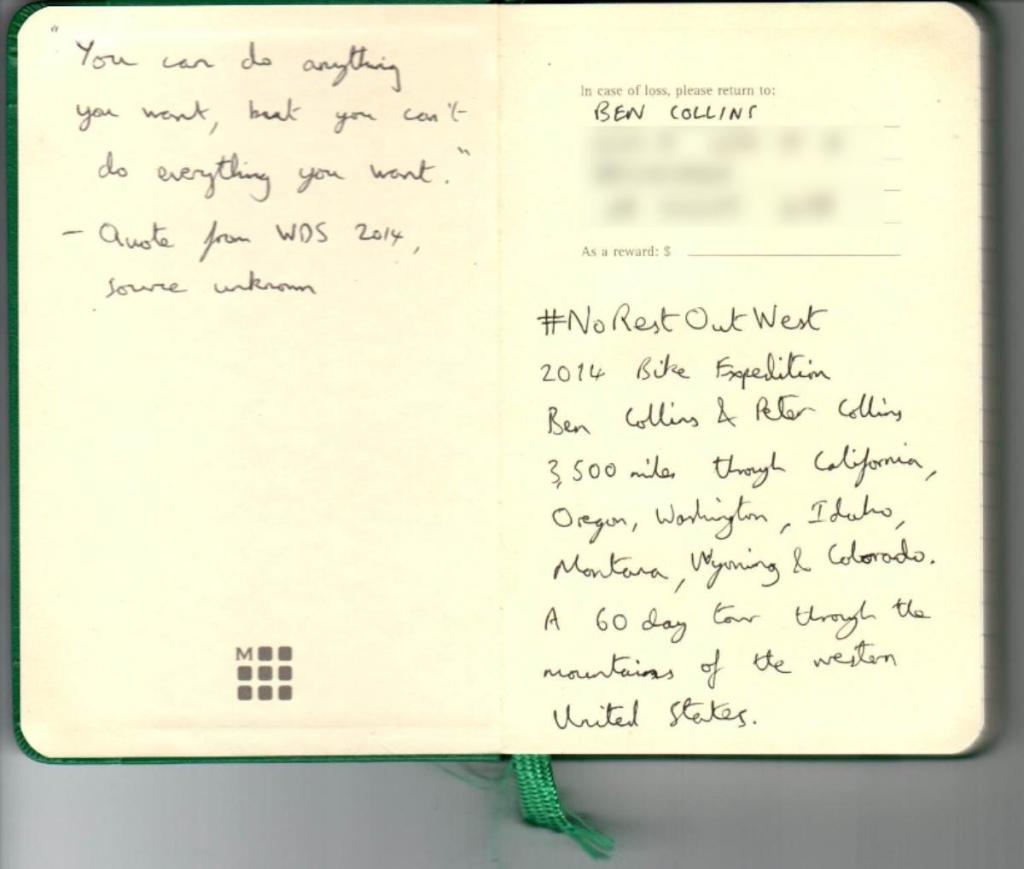 "You can do anything
you want, but you can't
do everything you want."
- Quote from WDS 2014,
source unknown
M
In case of loss, please return to:
BEN COLLINS
As a reward: $
#NoRestOutWest
2014 Bike Expedition
Ben Collins & Peter Collins
3,500 miles through California,
Oregon, Washington, Idaho,
Montana, Wyoming & Colorado.
A 60 day tour through the
mountains of the western
United States.